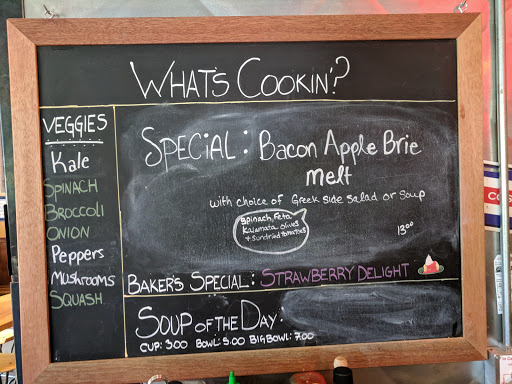 WHAT'S COOKIN'?
VEGGIES
Kale
SPINACH
BROCCOLI
ONION
Peppers
MUSHROOMS
SQUASH
SPECIAL: Bacon Apple Brie
melt
with choice of Greek side salad or Soup
Spinach, Feta
Kalamata olives
+ sundried tomatoes
13.00
BAKER'S SPECIAL: STRAWBERRY DELIGHT
SOUP OF THE DAY:
CUP: 3.00 BOWL: 5.00 BIG BOWL: 7.00